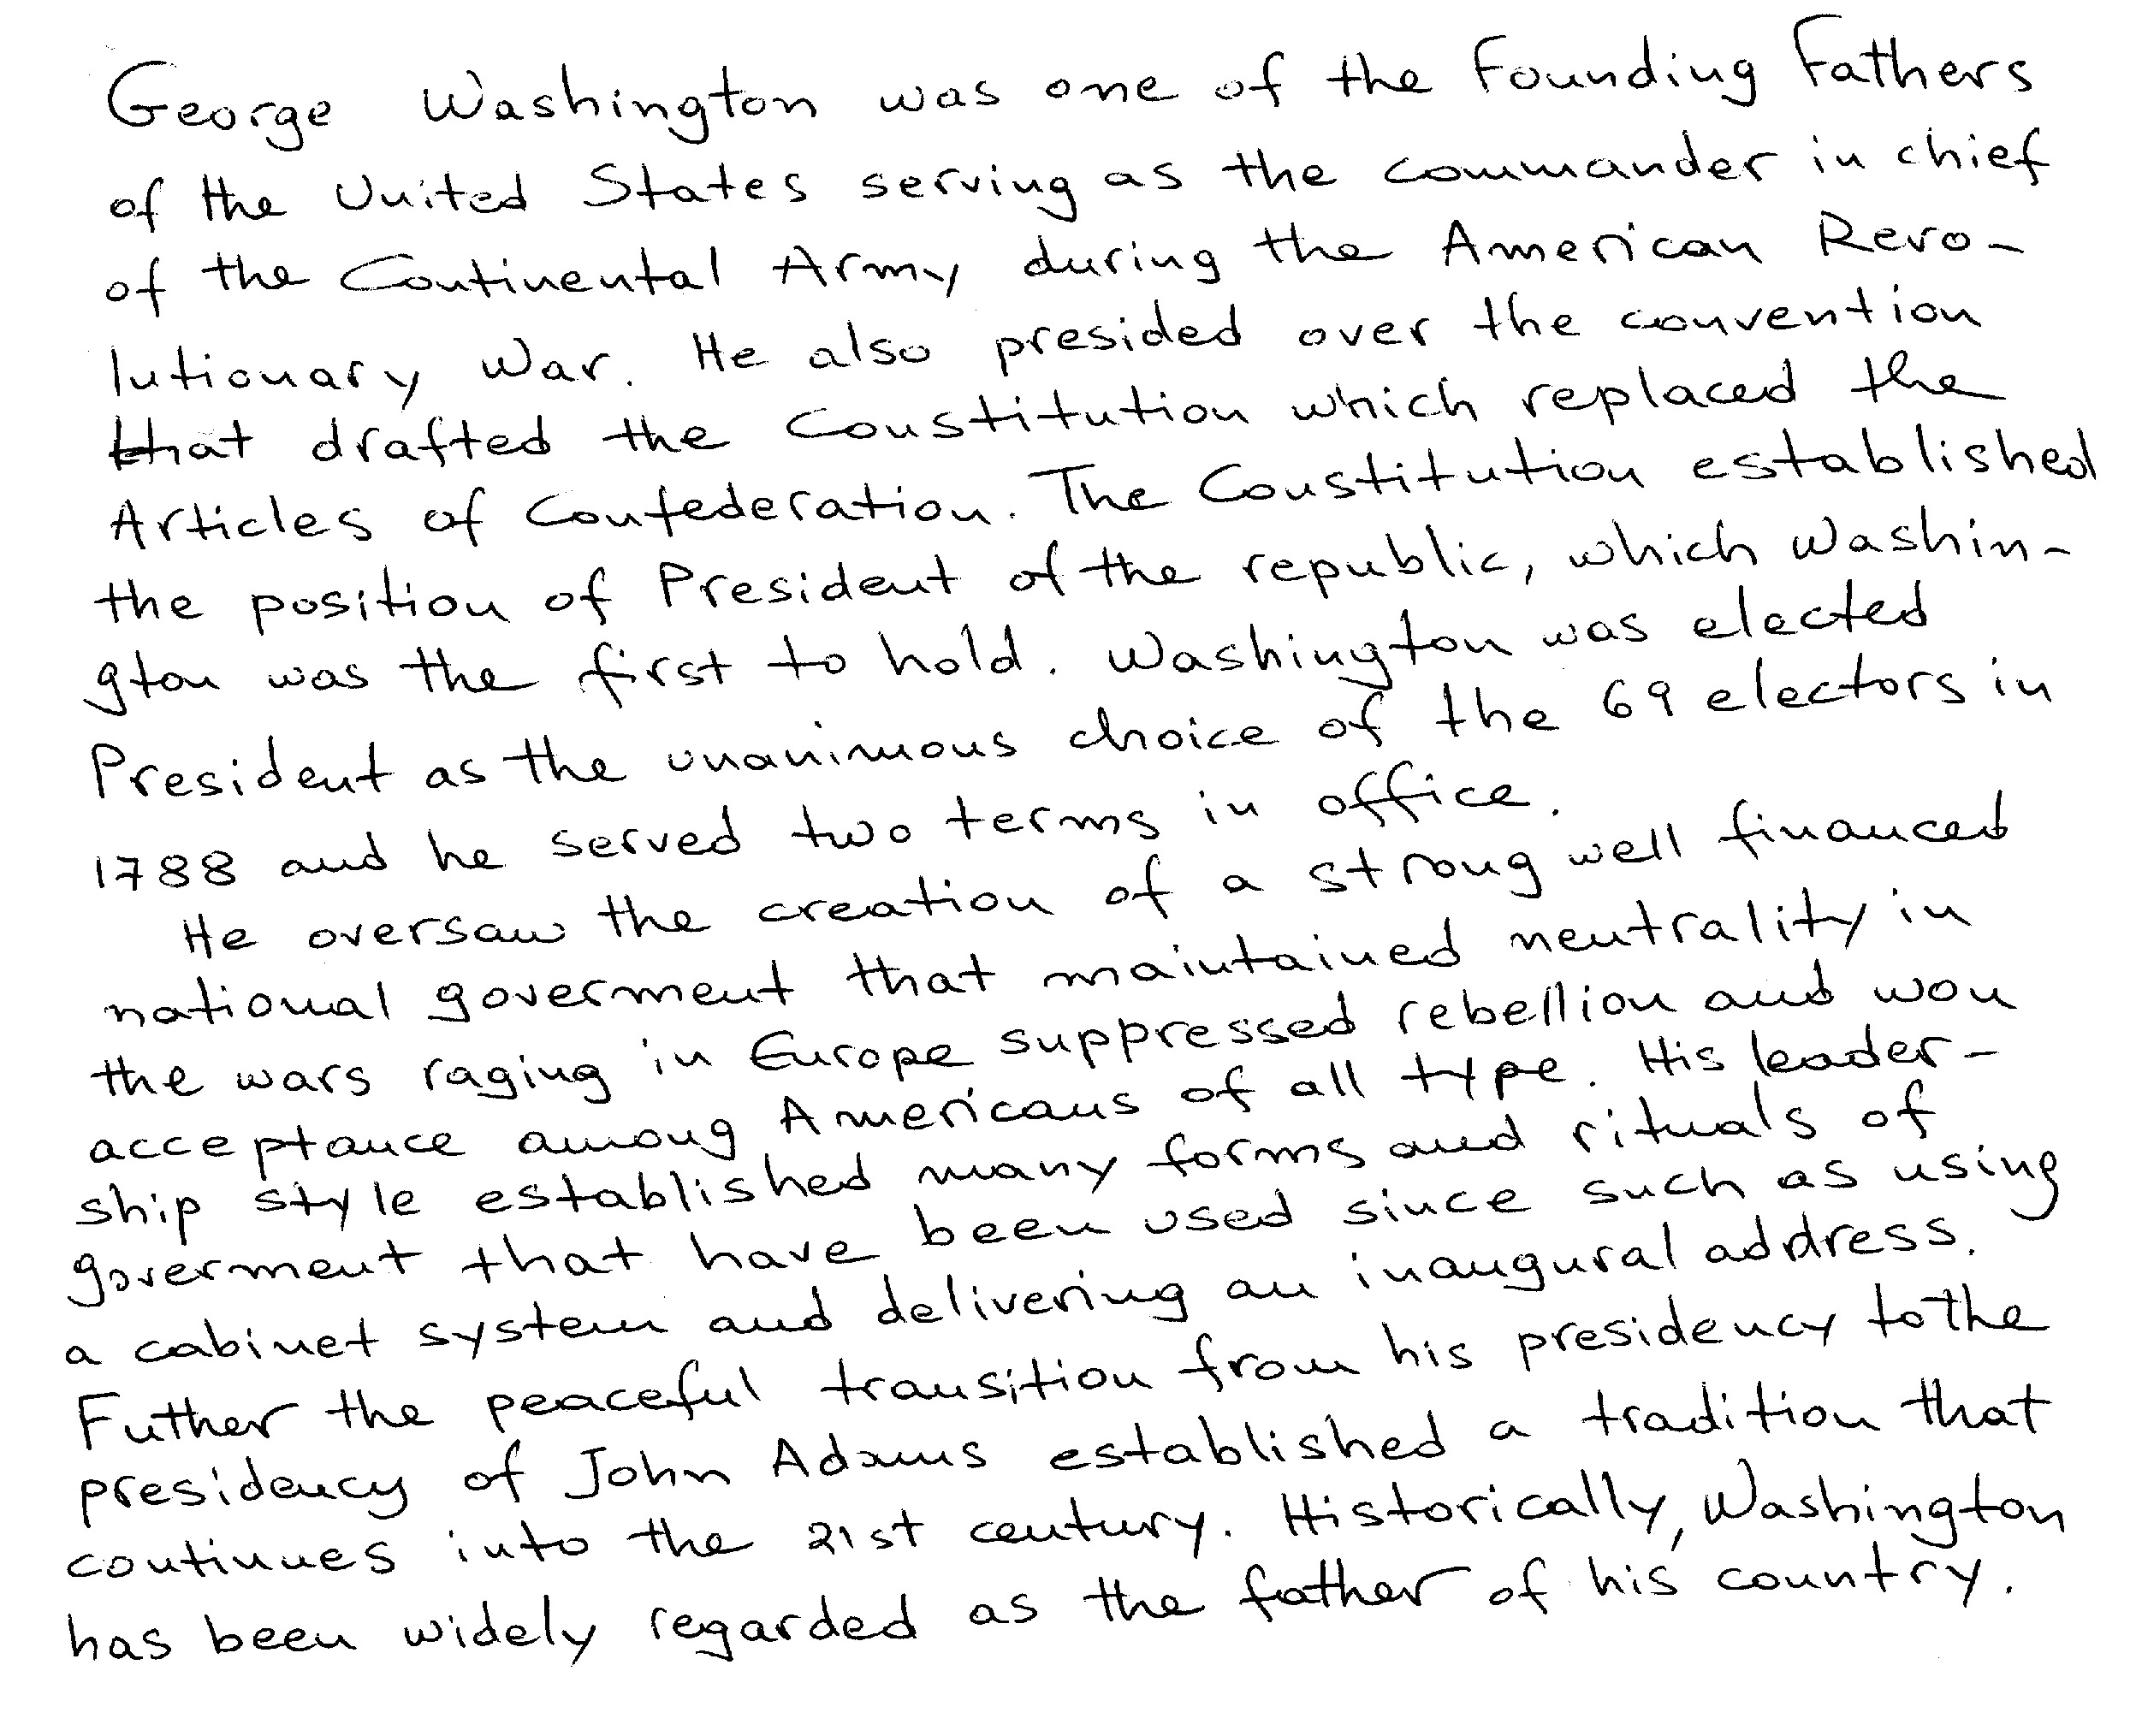 George Washington was one of the Founding Fathers
of the United States serving as the commander in chief
of the Continental Army during the American Revo-
lutionary War. He also presided over the convention
that drafted the Constitution which replaced the
Articles of Confederation. The Constitution established
the position of President of the republic, which Washin-
gton was the first to hold. Washington was elected
President as the unanimous choice of the 69 electors in
1788 and he served two terms in office.
He oversaw the creation of a strong well financed
national goverment that maintained neutrality in
the wars raging in Europe suppressed rebellion and won
acceptance among Americans of all type. His leader-
ship style established many forms and rituals of
goverment that have been used since such as using
a cabinet system and delivering an inaugural address.
Futher the peaceful transition from his presidency to the
presidency of John Adams established a tradition that
continues into the 21st century. Historically, Washington
has been widely regarded as the father of his country.